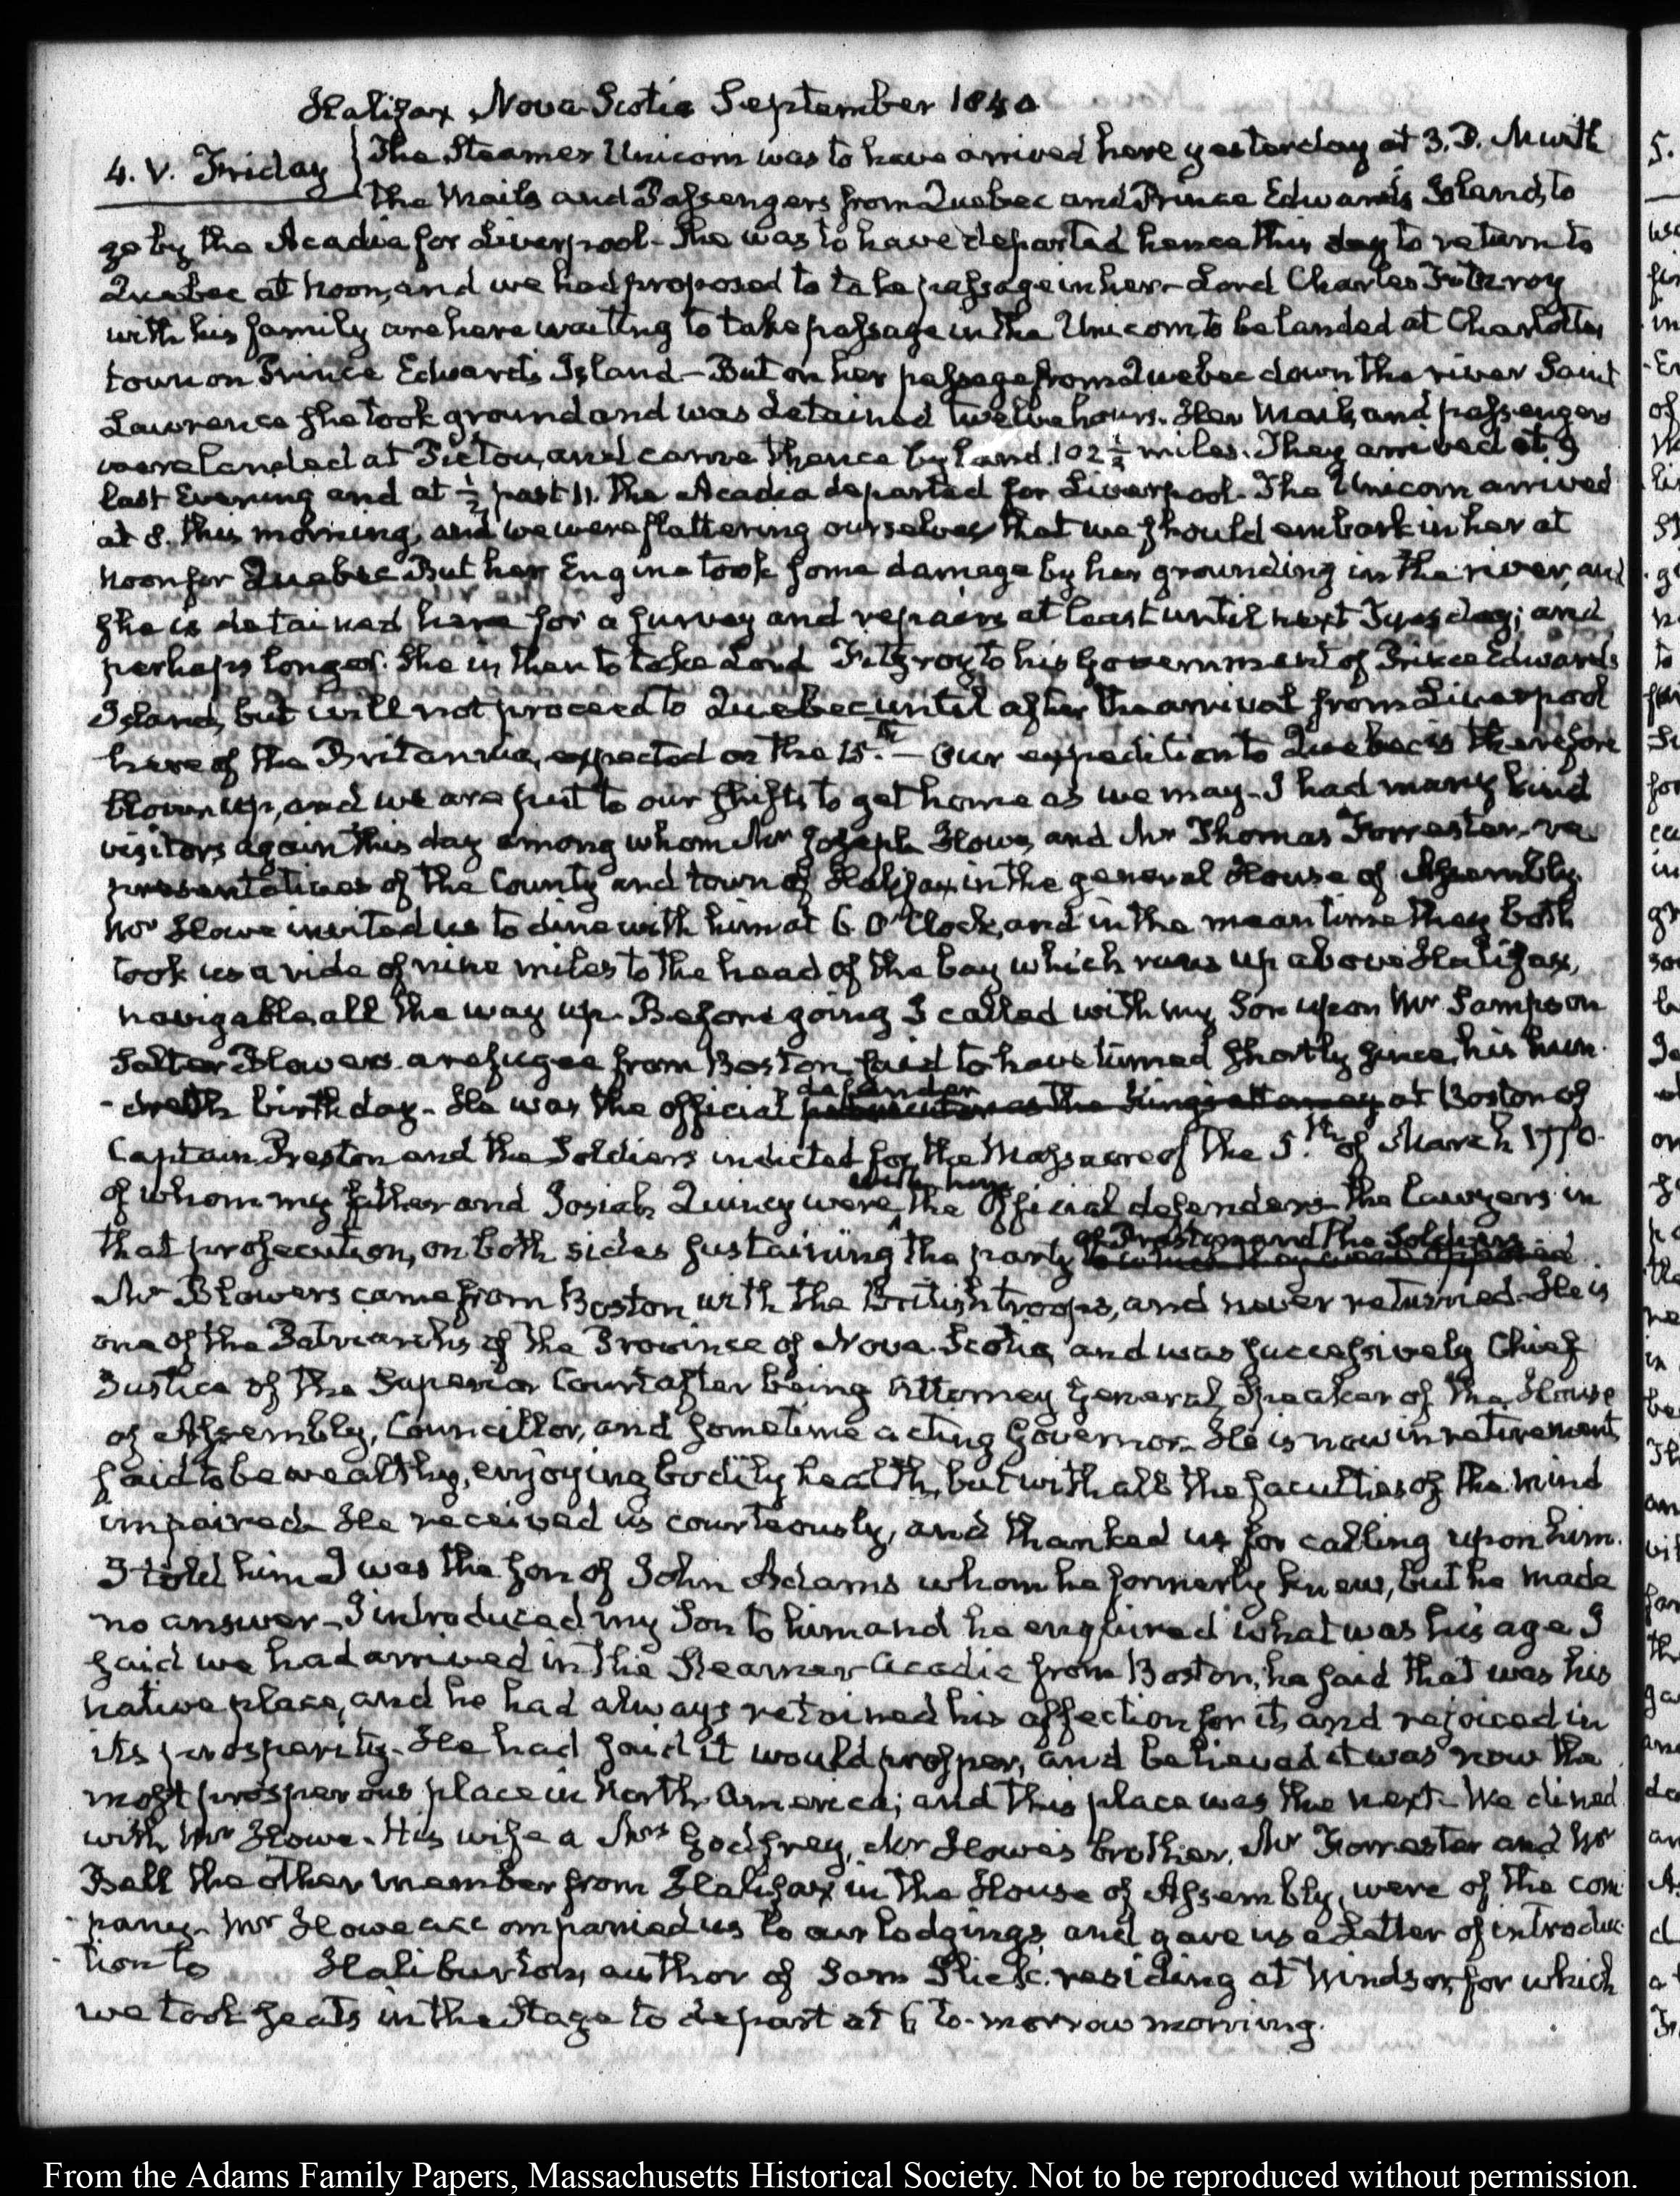 Halifax Nova-Scotia September 1840
4. V. Friday } The Steamer Unicorn was to have arrived here yesterday at 3. P. M with
the Mails and Passengers from Quebec and Prince Edward's Island, to
go by the Acadia for Liverpool- She was to have departed hence this day to return to
Quebec at Noon, and we had proposed to take passage in her- Lord Charles Fitzroy
with his family are here waiting to take passage in the Unicorn to be landed at Charlotte
town on Prince Edward's Island- But on her passage from Quebec down the river Saint
Lawrence she took ground and was detained twelve hours. Her Mails, and passengers
were landed at Pictou, and came thence by land 102 ½ miles. They arrived at 9
last Evening and at ½ past 11. the Acadia departed for Liverpool- The Unicorn arrived
at 8. this morning, and we were flattering ourselves that we should embark in her at
Noon for Quebec But her Engine took some damage by her grounding in the river, and
she is detained here for a survey and repairs at least until next Tuesday; and
perhaps longer. She is then to take Lord Fitzroy to his Government of Prince Edward's
Island, but will not proceed to Quebec until after the arrival from Liverpool
here of the Britannia, expected on the 15th.- Our expedition to Quebec is therefore
blown up, and we are put to our shifts to get home as we may- I had many kind
visitors again this day among whom Mr Joseph Howe, and Mr Thomas Forrester- re
presentatives of the County and town of Halifax in the general House of Assembly.
Mr Howe invited us to dine with him at 6 O'Clock, and in the mean time they both
took us a ride of nine miles to the head of the bay which runs up above Halifax,
navigable all the way up- Before going I called with my Son upon Mr Sampson
Salter Blowers. a refugee from Boston, said to have turned shortly since, his hun-
-dredth birth day- He was the official defender at Boston of
Captain Preston and the Soldiers indicted for the Massacre of the 5.th of March 1770.
of whom my father and Josiah Quincy were with him the Official defenders- the lawyers in
that prosecution, on both sides sustaining the party of Preston and the Soldiers
Mr Blowers came from Boston with the British troops, and never returned- He is
one of the Patriarchs of the Province of Nova-Scotia, and was successively Chief
Justice of the Superior Court after being Attorney General, Speaker of the House
of Assembly, Councillor, and sometime acting Governor- He is now in retirement,
said to be wealthy, enjoying bodily health, but with all the faculties of the mind
impaired- He received us courteously, and thanked us for calling upon him.
I told him I was the son of John Adams whom he formerly knew, but he made
no answer- I introduced my Son to him and he enquired what was his age. I
said we had arrived in the Steamer Acadia from Boston; he said that was his
native place, and he had always retained his affection for it, and rejoiced in
its prosperity- He had said it would prosper, and believed it was now the
most prosperous place in North-America; and this place was the next- We dined
with Mr Howe- His wife a Mrs Godfrey, Mr Howe's brother, Mr Forrester and Mr
Bell the other member from Halifax in the House of Assembly, were of the com
-pany- Mr Howe accompanied us to our lodgings, and gave us a Letter of introduc
-tion to Haliburton, author of Sam Slick. residing at Windsor, for which
we took seats in the Stage to depart at 6 to-morrow morning.
From the Adams Family Papers, Massachusetts Historical Society. Not to be reproduced without permission.